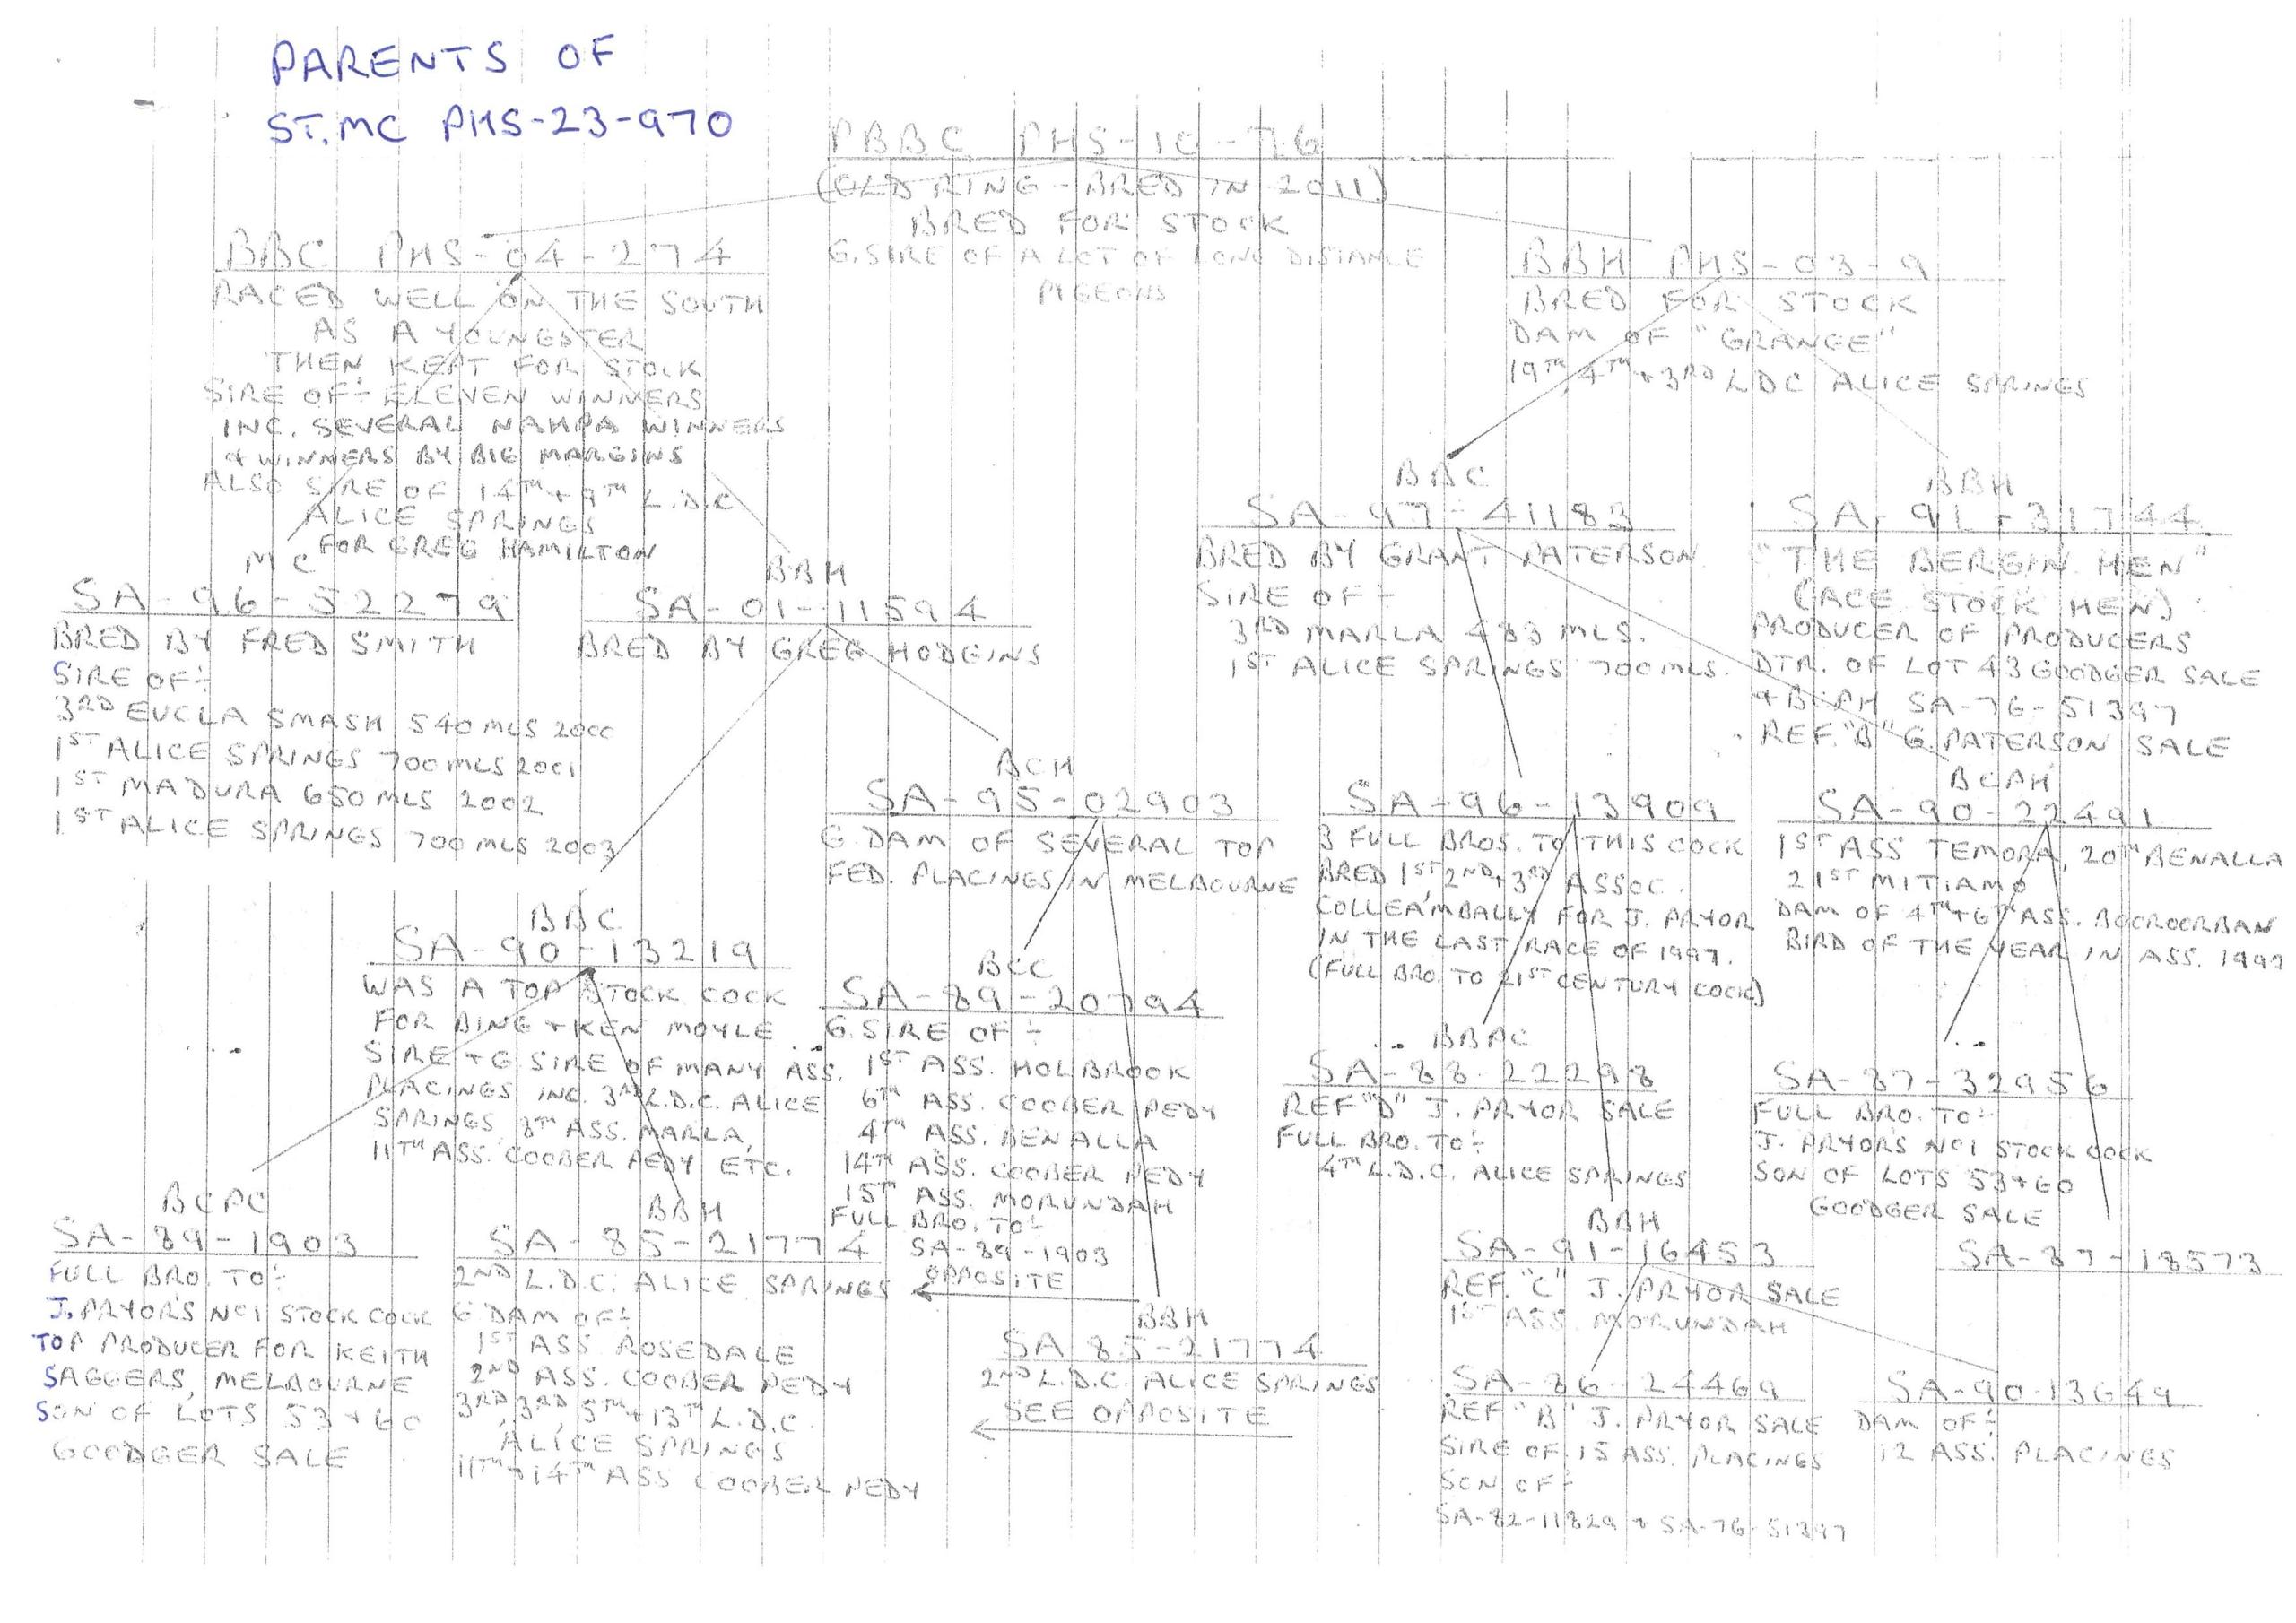 PARENTS OF
ST. MC PHS-23-970
PBBC PHS-10-76
(OLD RING - BRED IN 2011)
BRED FOR STOCK
G. SIRE OF A LOT OF LONG DISTANCE
PIGEONS
BBC PHS-04-274
RACED WELL ON THE SOUTH
AS A YOUNGSTER
THEN KEPT FOR STOCK
SIRE OF:- ELEVEN WINNERS
INC. SEVERAL NAHPA WINNERS
+ WINNERS BY BIG MARGINS
ALSO SIRE OF 14TH + 9TH L.D.C
ALICE SPRINGS
FOR GREG HAMILTON
BBH PHS-03-9
BRED FOR STOCK
DAM OF "GRANGE"
19TH, 4TH + 3RD LDC ALICE SPRINGS
MC
SA-96-52279
BRED BY FRED SMITH
SIRE OF:-
3RD EUCLA SMASH 540 MLS 2000
1ST ALICE SPRINGS 700 MLS 2001
1ST MADURA 650 MLS 2002
1ST ALICE SPRINGS 700 MLS 2003
BBH
SA-01-11594
BRED BY GREG HODGINS
BBC
SA-97-41183
BRED BY GRANT PATERSON
SIRE OF:-
3RD MARLA 483 MLS.
1ST ALICE SPRINGS 700 MLS.
BBH
SA-91-31744
"THE BERGIN HEN"
(ACE STOCK HEN)
PRODUCER OF PRODUCERS
DTR. OF LOT 43 GOODGER SALE
+ BCPH SA-76-51397
REF. "B" G. PATERSON SALE
BBC
SA-90-13219
WAS A TOP STOCK COCK
FOR BING + KEN MOYLE
SIRE + G. SIRE OF MANY ASS.
PLACINGS INC. 3RD L.D.C. ALICE
SPRINGS 8TH ASS. MARLA,
11TH ASS. COOBER PEDY ETC.
BCH
SA-95-02903
G. DAM OF SEVERAL TOP
FED. PLACINGS IN MELBOURNE
SA-96-13909
3 FULL BROS. TO THIS COCK
BRED 1ST, 2ND + 3RD ASSOC.
COLLEAMBALLY FOR J. PRYOR
IN THE LAST RACE OF 1997.
(FULL BRO. TO 21ST CENTURY COCK)
BCPH
SA-90-22491
1ST ASS TEMORA, 20TH BENALLA
21ST MITIAMO
DAM OF 4TH + 6TH ASS. BOOROORBAN
BIRD OF THE YEAR IN ASS. 1997
BCPC
SA-89-1903
FULL BRO. TO:-
J. PRYOR'S NO1 STOCK COCK
TOP PRODUCER FOR KEITH
SAGGERS, MELBOURNE
SON OF LOTS 53 + 60
GOODGER SALE
BBH
SA-85-21774
2ND L.D.C. ALICE SPRINGS
G. DAM OF:-
1ST ASS ROSEDALE
2ND ASS. COOBER PEDY
3RD, 3RD, 5TH + 13TH L.D.C.
ALICE SPRINGS
11TH + 14TH ASS COOBER PEDY
BCC
SA-89-20794
G. SIRE OF:-
1ST ASS. HOLBROOK
6TH ASS. COOBER PEDY
4TH ASS. BENALLA
14TH ASS. COOBER PEDY
15TH ASS. MORUNDAH
FULL BRO. TO:-
SA-89-1903
OPPOSITE
BBH
SA 85-21774
2ND L.D.C. ALICE SPRINGS
SEE OPPOSITE
BBPC
SA-88-22298
REF "D" J. PRYOR SALE
FULL BRO. TO:-
4TH L.D.C. ALICE SPRINGS
BBH
SA-91-16453
REF. "C" J. PRYOR SALE
1ST ASS. MORUNDAH
SA-87-32956
FULL BRO. TO:-
J. PRYOR'S NO1 STOCK COCK
SON OF LOTS 53 + 60
GOODGER SALE
SA-87-18573
SA-86-24469
REF "B" J. PRYOR SALE
SIRE OF 15 ASS. PLACINGS
SON OF:-
SA-82-11829 + SA-76-51397
SA-90-13649
DAM OF:-
12 ASS. PLACINGS